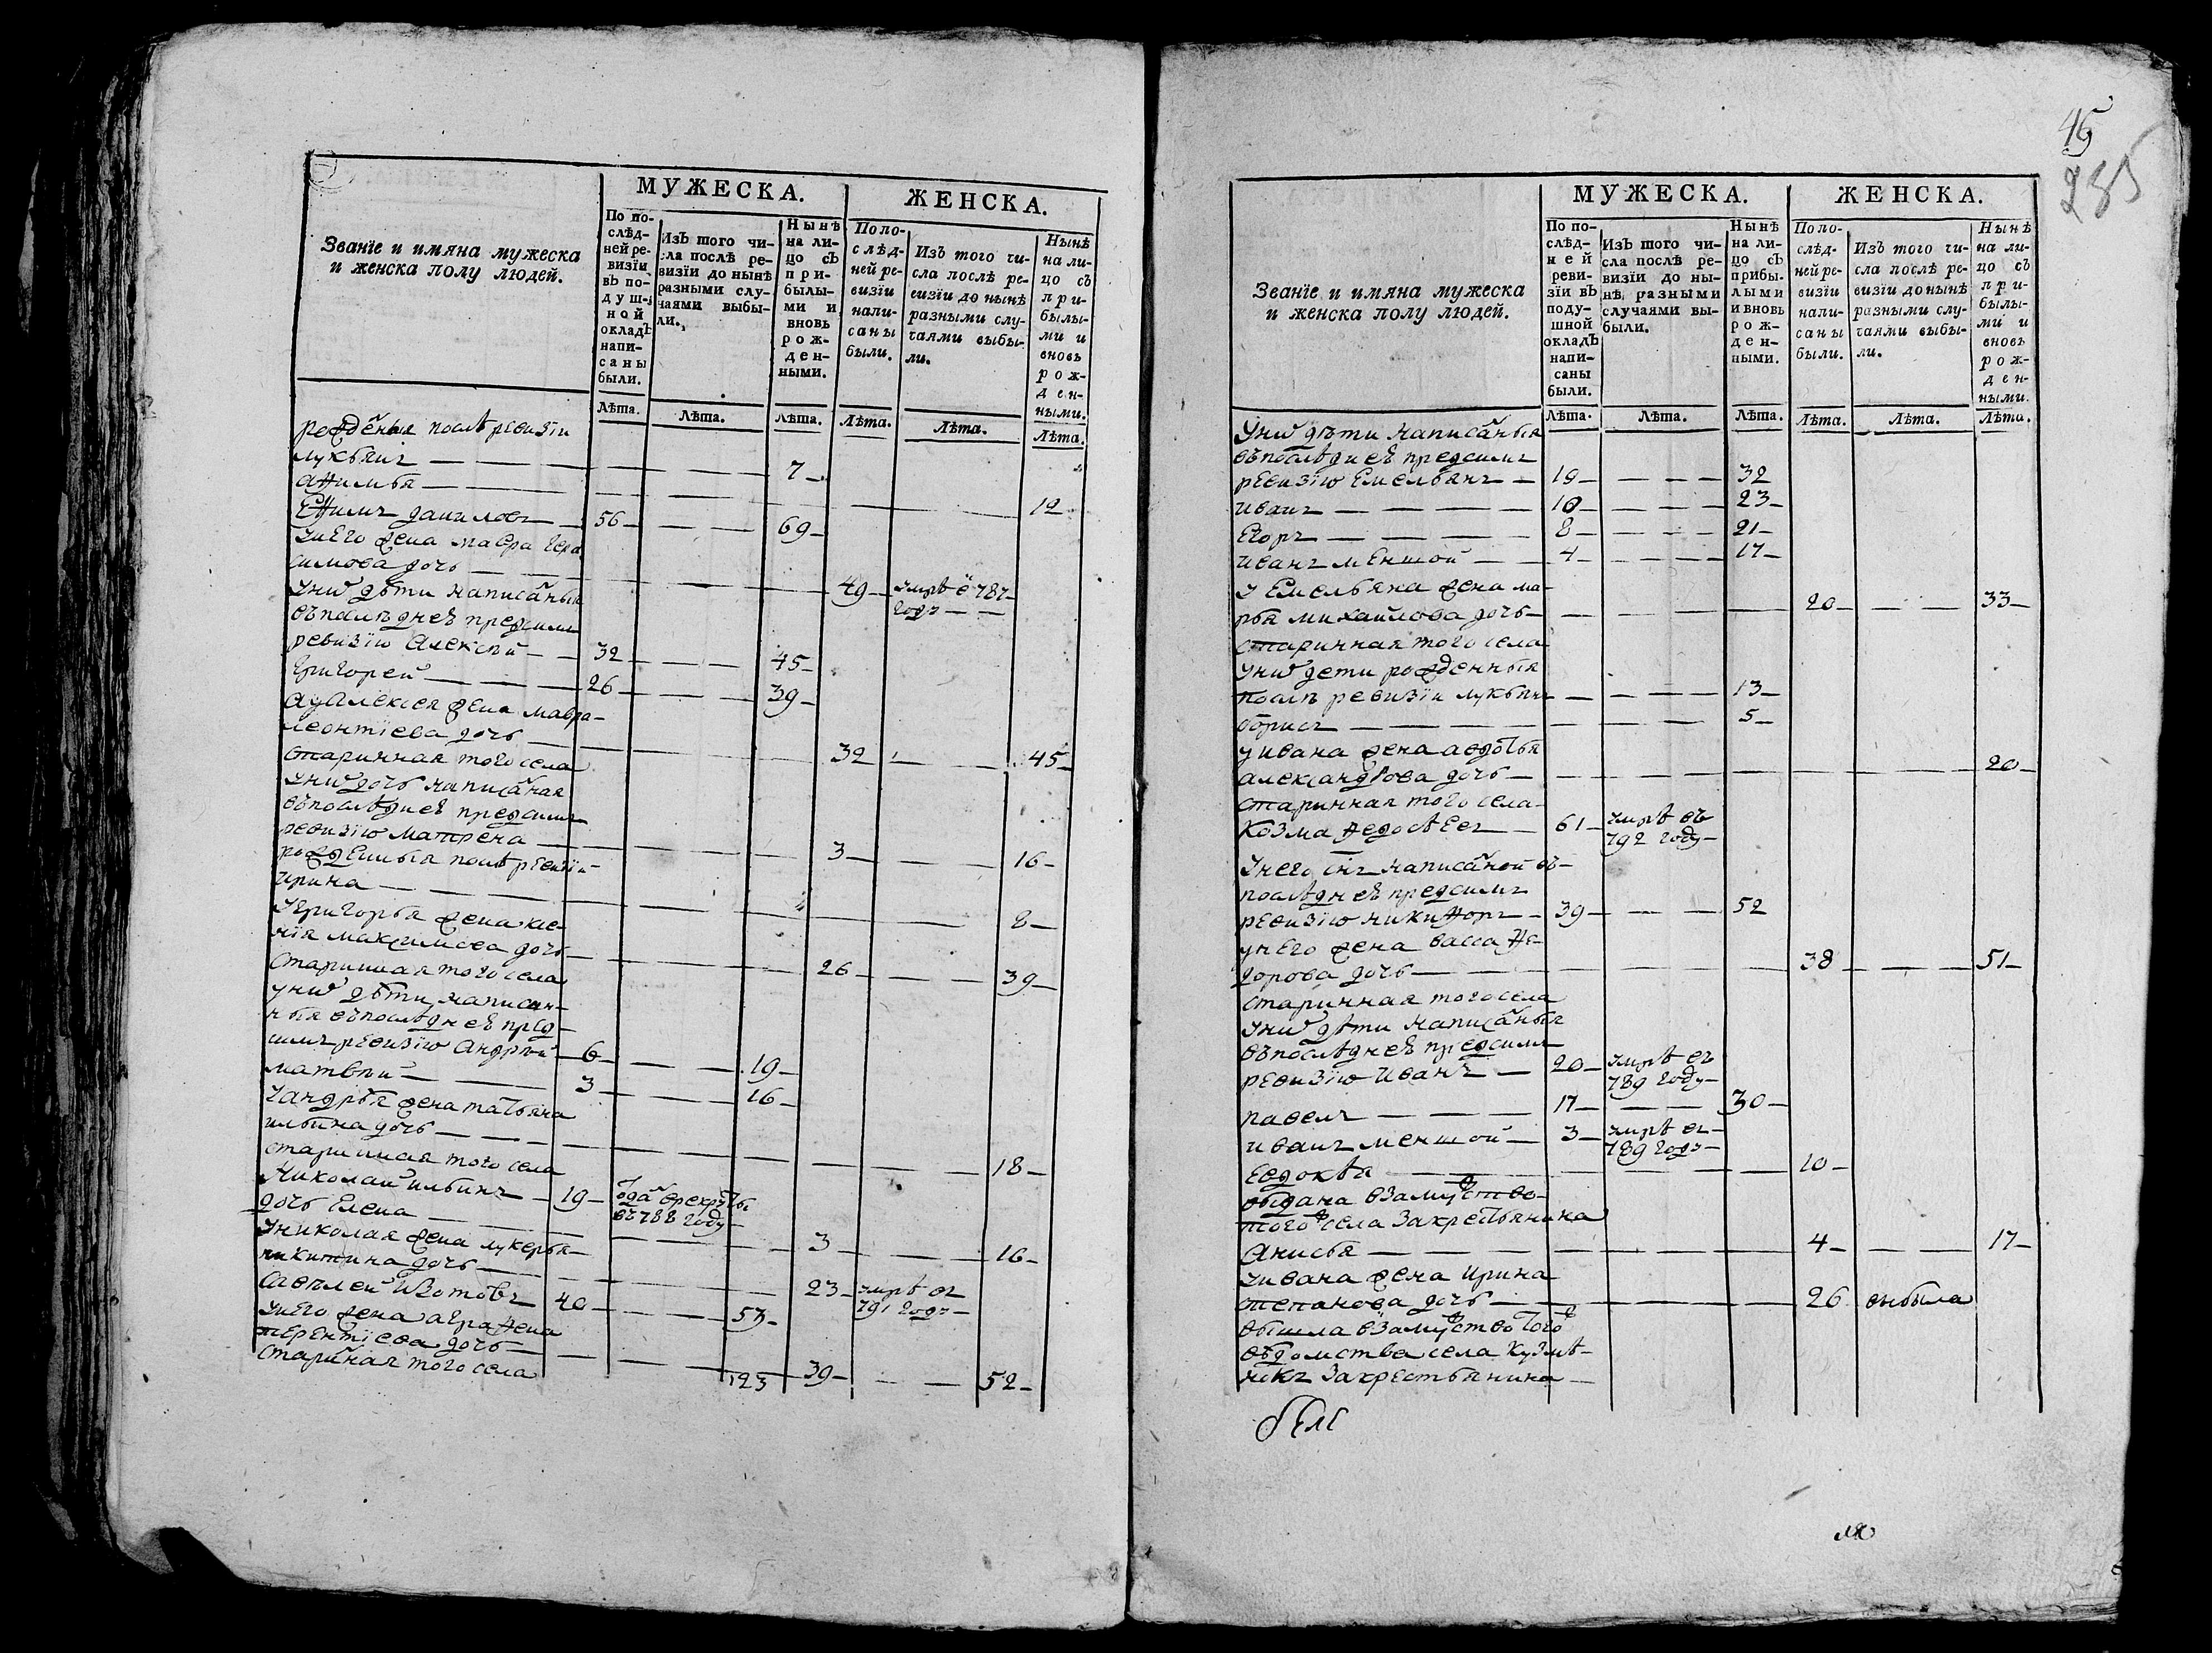 МУЖЕСКА. ЖЕНСКА.
Званїе и имяна мужеска
и женска полу людей.
По по-
слѣд-
ней ре-
визїи
въ по-
душ-
ной
окладъ
напи-
саны
были.
Изъ того чи-
сла послѣ ре-
визїи до нынѣ
разными слу-
чаями выбы-
ли.
Нынѣ
на ли-
цо съ
при-
былы-
ми и
вновь
рож-
ден-
ными.
По по-
слѣд-
ней ре-
визїи
напи-
саны
были.
Изъ того чи-
сла послѣ ре-
визїи до нынѣ
разными слу-
чаями выбы-
ли.
Нынѣ
на ли-
цо съ
при-
былы-
ми и
вновь
рож-
ден-
ными.
Лѣта. Лѣта. Лѣта. Лѣта. Лѣта. Лѣта.
рожденыя послѣ ревизїи
лукьянъ — 7 —
афимья — 12
Ефимъ даниловъ — 56 — 69 —
унего жена мавра гера
симова дочь — 49 — умрѣ в 787
году — —
унихъ дѣти написаныя
въпослѣднеѣ предсимъ
ревизїю алексѣй — 32 — 45 —
григорей — 26 — 39 —
ауалексея жена мавра —
леонтїева дочь — 32 — 45 —
старинная того села
унихъ дочь написаная
въпослѣднеѣ предсимъ
ревизїю матрена — 3 — 16 —
рожденыя послѣ ревизїи
ирина — 8 —
угригорья жена ксе-
нїя максимова дочь — 26 — 39 —
старинная того села
унихъ дѣти написан-
ныя въпослѣднеѣ пред-
симъ ревизїю андрѣй — 6 — 19 —
матвѣй — 3 — 16 —
уандрѣя жена татьяна
ильина дочь — 18 —
старинная того села
Николай ильинъ — 19 — отданъ врекруты
въ 788 году —
дочь елена — 3 — 16 —
униколая жена лукерья —
никитина дочь — 23 — умрѣ въ
791 году —
савѣлей изотовъ 40 — 53 —
унего жена аграфена
терентїева дочь — 39 — 52 —
старинная того села
123
45
285
МУЖЕСКА. ЖЕНСКА.
Званїе и имяна мужеска
и женска полу людей.
По по-
слѣд-
ней
реви-
зїи въ
поду-
шной
окладъ
напи-
саны
были.
Изъ того чи-
сла послѣ ре-
визїи до ны-
нѣ разными
случаями вы-
были.
Нынѣ
на ли-
цо съ
прибы-
лыми
и вновь
рож-
ден-
ными.
По по-
слѣд-
ней ре-
визїи
напи-
саны
были.
Изъ того чи-
сла послѣ ре-
визїи до нынѣ
разными слу-
чаями выбы-
ли.
Нынѣ
на ли-
цо съ
при-
былы-
ми и
вновь
рож-
ден-
ными.
Лѣта. Лѣта. Лѣта. Лѣта. Лѣта. Лѣта.
Унихъ дѣти написаныя
въпослѣднеѣ предсимъ
ревизїю Емельянъ — 19 — 32
иванъ — 10 — 23 —
Егоръ — 8 — 21 —
иванъ меншой — 4 — 17 —
у Емельяна жена ма-
рья михайлова дочь — 20 — 33 —
старинная того села
унихъ дети рожденныя
послѣ ревизїи лукьянъ — 13 —
борисъ — 5 —
уивана жена авдотья
александрова дочь — 20 —
старинная того села —
Козма федосѣевъ — 61 — умрѣ въ
792 году —
Унего снъ написаной въ —
послѣднеѣ предсимъ
ревизїю никифоръ — 39 — 52
унего жена васса фе-
дорова дочь — 38 — 51 —
старинная того села
унихъ дѣти написаныя
въпослѣднеѣ предсимъ
ревизїю иванъ — 20 — умрѣ въ
789 году —
павелъ — 17 — 30 —
иванъ меншой — 3 — умрѣ въ —
789 году —
Евдокѣя — 10 —
выдана взамужство —
тогожъ села закрестьянина
анисья — 4 — 17 —
уивана жена ирина
степанова дочь — 26 выбыла
вышла взамужство тогожъ
вѣдомства села Кузмѣ —
нокъ закрестьянина —